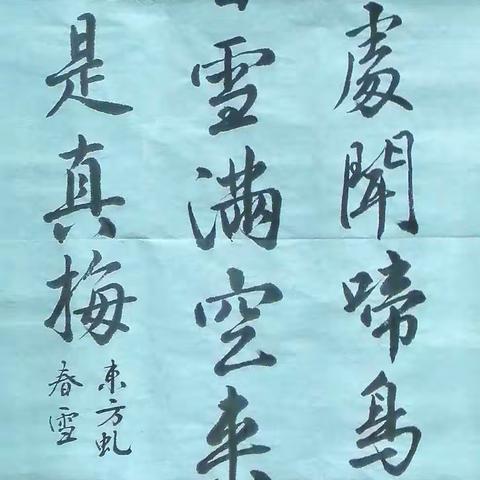 處聞啼鳥
雪滿空來
是真梅
東方虬
春雪